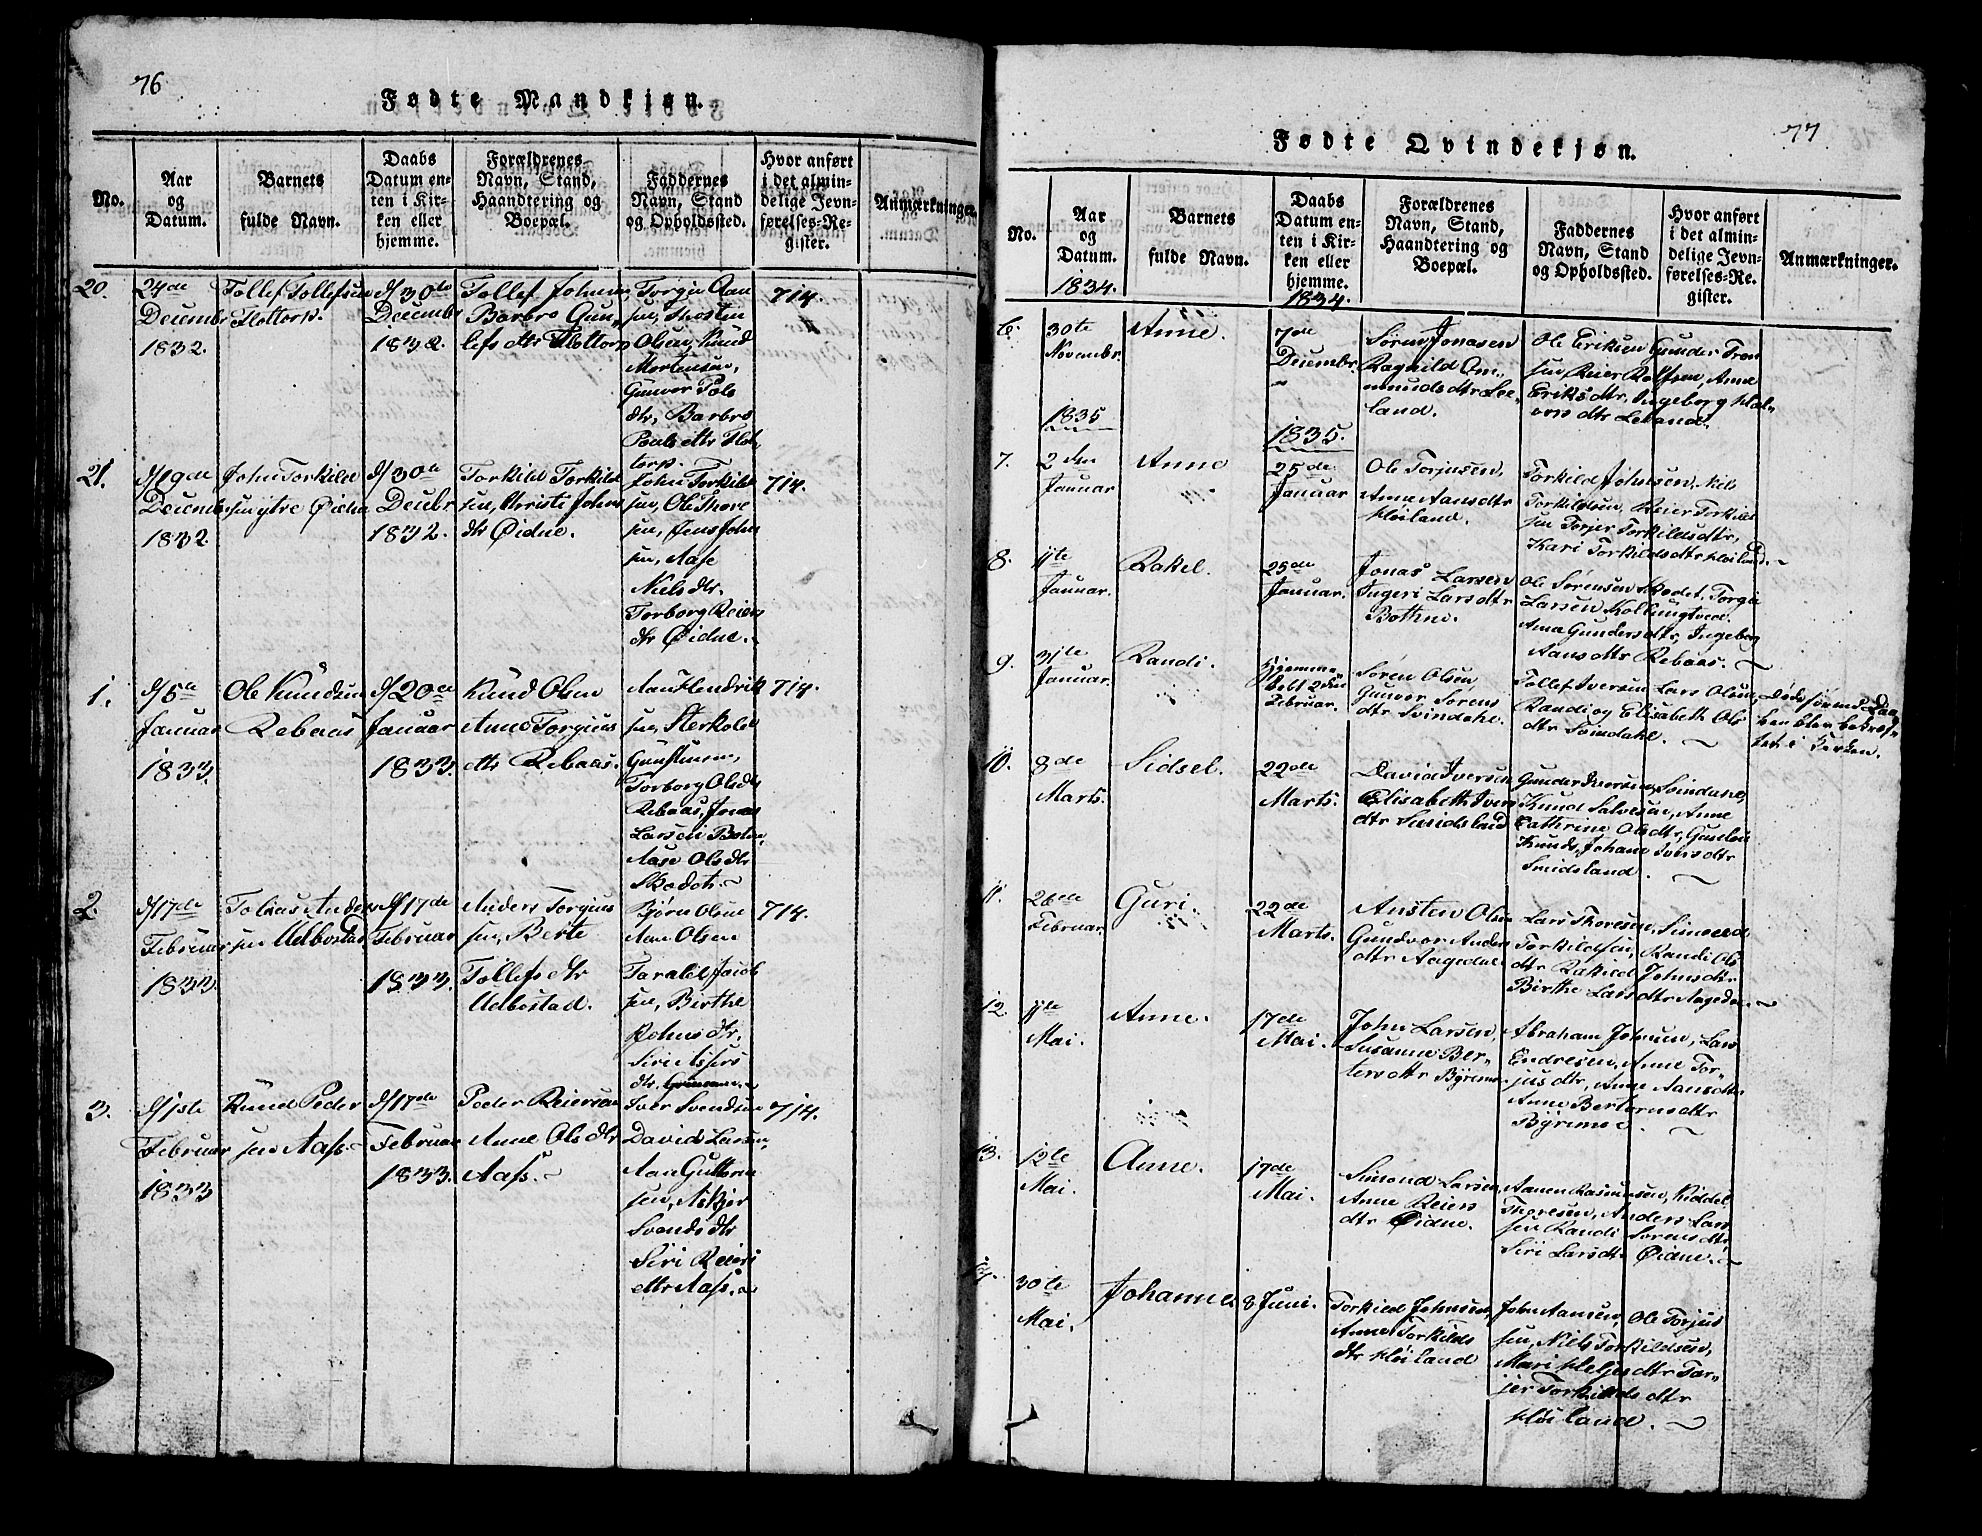 76
Fødte Mandkjøn.
No.
Aar
og
Datum.
Barnets
fulde Navn.
Daabs
Datum en-
ten i Kir-
ken eller
hjemme.
Forældrenes
Navn, Stand,
Haandtering og
Boepæl.
Faddernes
Navn, Stand
og Opholdssted.
Hvor anført
i det almin-
delige Jevn-
førelses-Re-
gister.
Anmærkninger.
20.
24de
Decembr
1832.
Tollef Tollefsen
Flottorp.
d/30te
Decembr
1832.
Tollef Johns
Barbro Gun-
lefs dtr Flottorp
Torgju Aan
sen, Thosten
Olsen, Knud
Mortensen,
Gunvor Pols
dtr, Barbro
Pouls dtr Flot
torp.
714.
21.
d/19de
Decembr
1832
John Torkild
sen ytre Øidna
d/30te
Decbr
1832.
Torkild Torkild
sen, Christe Johns
dtr Øidne.
John Torkild
sen, Ole Thore
sen, Jens John
sen, Aase
Niels dtr.
Torborg Reiers
dtr Øidne.
714.
1.
d/5te
Januar
1833.
Ole Knudsen
Rebaas
d/20de
Januar
1833.
Knud Olsen
Anne Torgius
dtr Rebaas.
Aan Hendrik
sen, Sterkold
Torborg Olsdtr
Rebaas, Jonas
Larsen
Aase Olsdtr
714.
2.
d/17de
Februar
1833.
Tobias Anders
sen Udbostad
d/17de
Februar
1833.
Anders Torgius
sen, Berte
Tollefs dtr
Udbostad.
Bjørn Olsen
Aan Olsen
Taralel Jacob
sen, Birthe
Johns dtr.
Siri Assers
dtr.
714.
3.
d/1ste
Februar
1833
Knud Peder
sen Aass.
d/17de
Februar
1833.
Peder Reiersen
Anne Ols dtr
Aass.
Iver Svendsen
David Larsen
Aan Guttorm
sen, Askjer
Svends dtr
Siri Reiers
dtr Aass.
714.
77
Fødte Qvindekjøn.
No.
Aar
og
Datum.
1834.
Barnets
fulde Navn.
Daabs
Datum en-
ten i Kir-
ken eller
hjemme.
1834.
Forældrenes
Navn, Stand,
Haandtering og
Boepæl.
Faddernes
Navn, Stand
og Opholdssted.
Hvor anført
i det almin-
delige Jevn-
førelses-Re-
gister.
Anmærkninger.
6.
30te
Novembr.
Anne.
7de
Decembr
Søren Jonasen
Ragnild Om-
munds dtr Lee-
land.
Ole Eriksen Gunder Tron
sen, Reier Rolfsen, Anne
Eriks dtr, Ingeborg Hal-
vors dtr Leland.
1835
1835.
7.
2den
Januar
Anne
25de
Januar
Ole Torjusen,
Anne Aansdtr
Høiland.
Torkild Johnsen, Nils
Torkildsen, Reier Torkild
sen Torjer Torkildsdtr,
Kari Torkildsdtr Høiland.
8.
11te
Januar.
Rakel.
25de
Januar.
Jonas Larsen
Ingeri Larsdtr
Bothne.
Ole Sørensen Skodet, Torgie
Larsen Kollungtveit.
Anna Gundersdtr, Ingeborg
Aansdtr Rebaas.
9.
31te
Januar.
Randi.
Hjemme
døbt 2den
Februar.
Søren Olsen,
Gunvor Sørens
dtr Svindahl.
Tollef Iversen Lars Olsen,
Randi og Elisabeth Ols
dtr Svindahl.
10.
8de
Marts.
Sidsel.
22de
Marts.
David Iversen
Elisabeth Ivers
dtr Smidsland
Gunder Iversen, Svindahl,
Knud Salvesen, Anne
Cathrine Olsdtr, Gunelen
Knuds, Johane Iversdtr
Smidsland.
11.
26de
Februar.
Guri.
22de
Marts.
Austen Olsen
Gundvor Anders
dtr Aagedal
Lars Thoresen, Simond
Torkildsen, Randi Ols
dtr Rakied Johnsdtr
Birthe Larsdtr Aagedal.
12.
11te
Mai.
Anne.
17de
Mai.
John Larsen,
Susanne Ber-
tersdtr Byremo
Abraham Johnsen, Lars
Endresen, Anne Tor-
jusdtr, Anne Aansdtr
Anne Bertorns dtr
Byremoe.
13.
12te
Mai.
Anne.
17de
Mai.
Simond Larsen,
Anne Reiers
dtr Øidne.
Aanen Rasmusen, Kiddel
Thoresen, Anders Lars
sen Randi Sørensdtr,
Siri Larsdtr Øidne.
14.
30te
Mai.
Johanne
8 Juni.
Torkild Johnsen,
Anne Torkilds
dtr Høiland
John Aansen, Ole Torjus
sen, Niels Torkildsen,
Mari Heljesdtr Tor-
jer Torkilds dtr
Høiland.